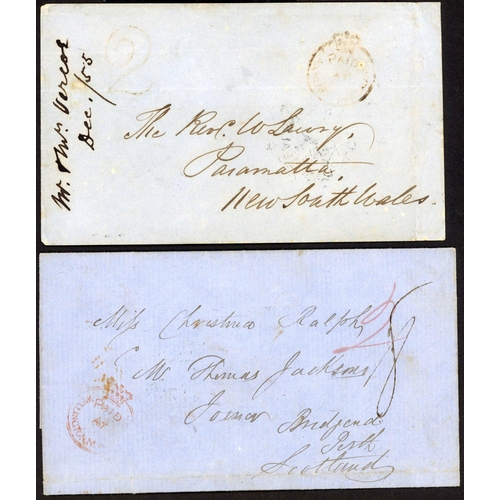 Mr. & Mrs. Vercoe
Dec. /55
2
PAID
The Revd. W Lawry,
Paramatta,
New South Wales.
Miss Christina Ralph,
C/ Mr. Thomas Jackson,
Joiner
Bridgend
Perth
Scotland
PAID